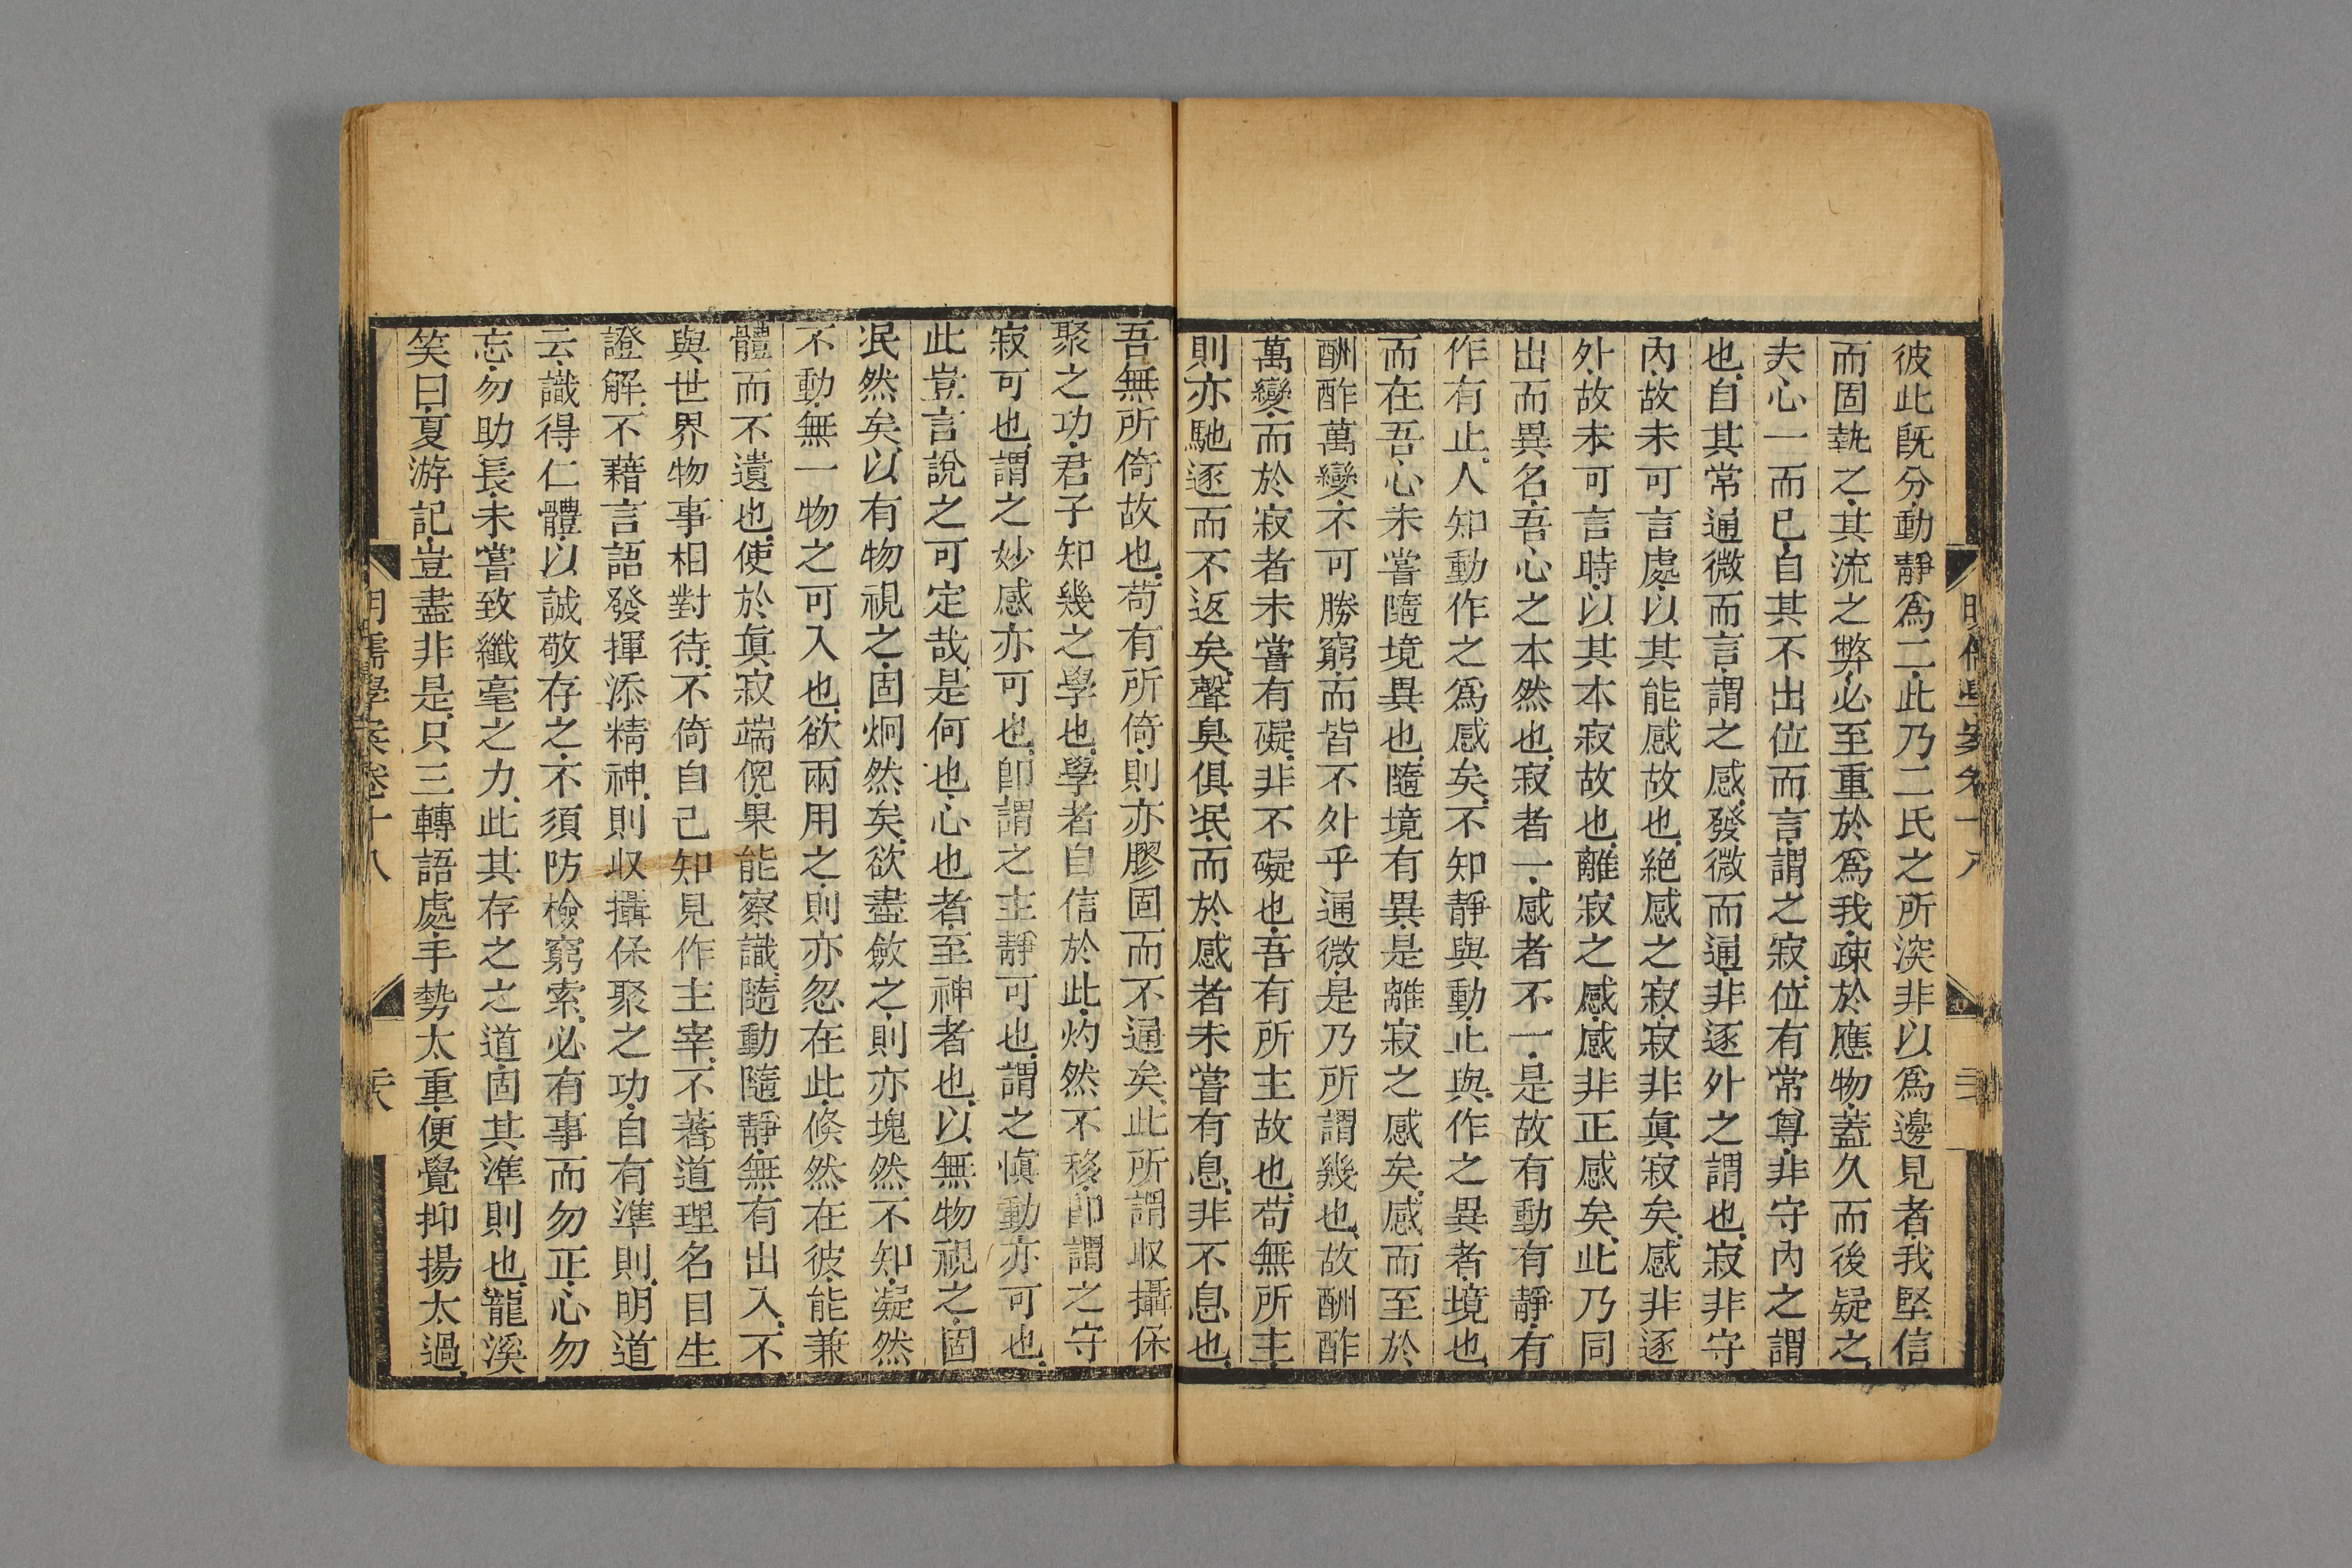 彼此旣分動靜爲二此乃二氏之所深非以爲邊見者我堅信
而固執之其流之弊必至重於爲我疎於應物蓋久而後疑之
夫心一而已自其不出位而言謂之寂位有常尊非守內之謂
也自其常通微而言謂之感發微而通非逐外之謂也寂非守
內故未可言處以其能感故也絕感之寂寂非眞寂矣感非逐
外故未可言時以其本寂故也離寂之感感非正感矣此乃同
出而異名吾心之本然也寂者一感者不一是故有動有靜有
作有止人知動作之爲感矣不知靜與動止與作之異者境也
而在吾心未嘗隨境異也隨境有異是離寂之感矣感而至於
酬酢萬變不可勝窮而皆不外乎通微是乃所謂幾也故酬酢
萬變而於寂者未嘗有礙非不礙也吾有所主故也苟無所主
則亦馳逐而不返矣聲臭俱泯而於感者未嘗有息非不息也
吾無所倚故也苟有所倚則亦膠固而不通矣此所謂收攝保
聚之功君子知幾之學也學者自信於此灼然不移卽謂之守
寂可也謂之妙感亦可也卽謂之主靜可也謂之愼動亦可也
此豈言說之可定哉是何也心也者至神者也以無物視之固
泯然矣以有物視之固炯然矣欲盡斂之則亦塊然不知凝然
不動無一物之可入也欲兩用之則亦忽在此倐然在彼能兼
體而不遺也使於眞寂端倪果能察識隨動隨靜無有出入不
與世界物事相對待不倚自己知見作主宰不著道理名目生
證解不藉言語發揮添精神則收攝保聚之功自有準則明道
云識得仁體以誠敬存之不須防檢窮索必有事而勿正心勿
忘勿助長未嘗致纖毫之力此其存之之道固其準則也龍溪
笑曰夏游記豈盡非是只三轉語處手勢太重便覺抑揚太過
明儒學案卷十八